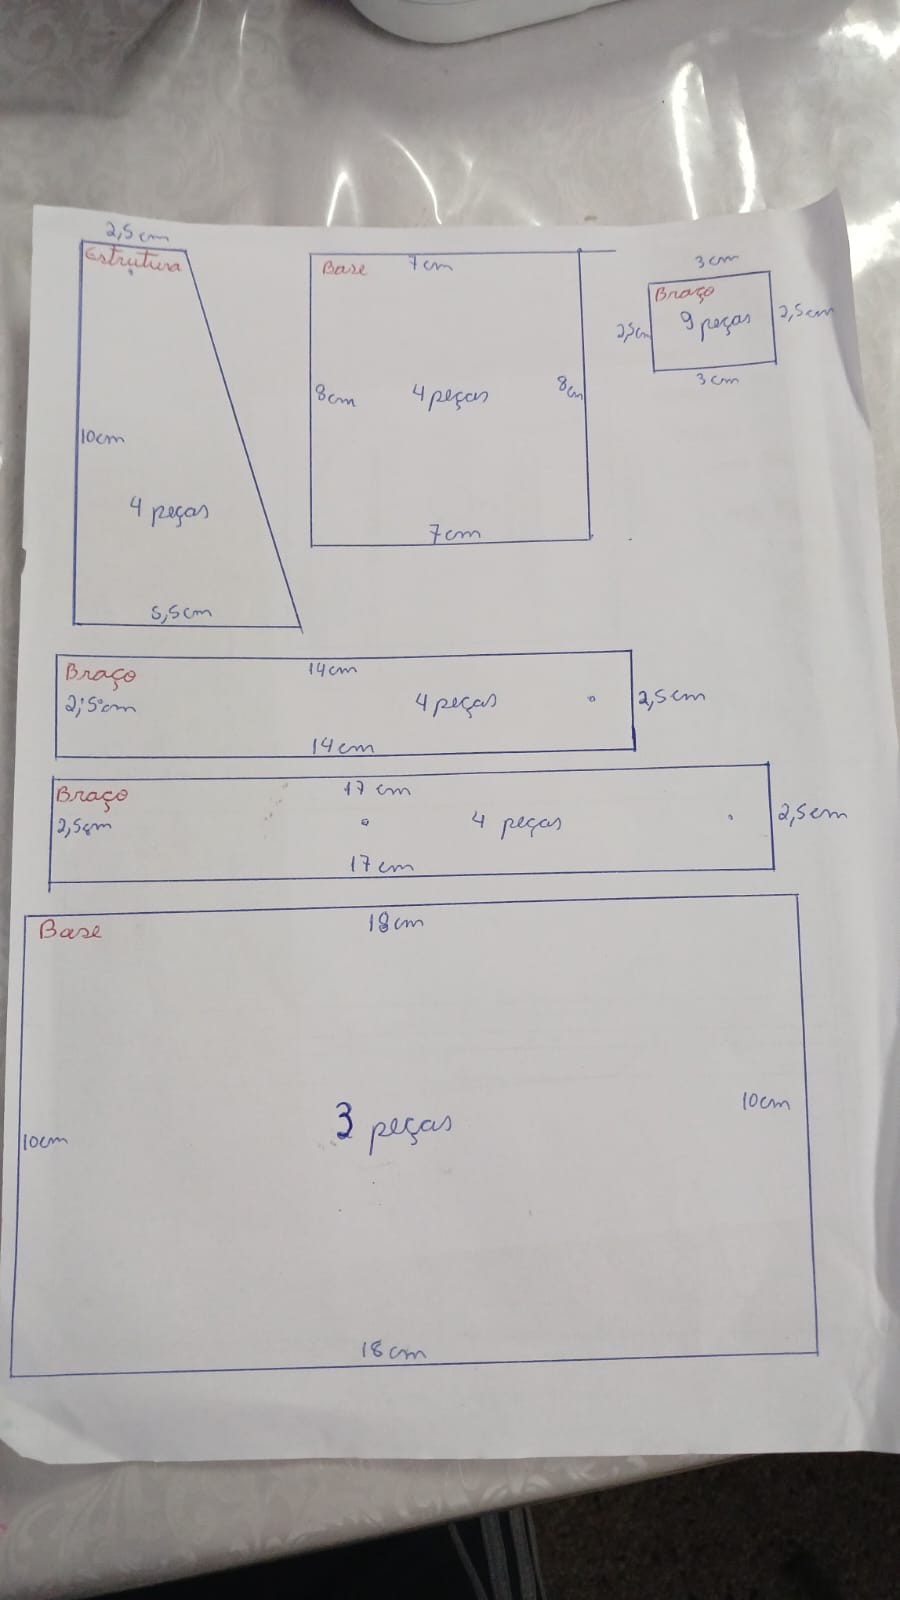 2,5cm
Estrutura
10cm
4 peças
5,5cm
Base
7cm
8cm
4 peças
8cm
7cm
3cm
Braço
9 peças
2,5cm
2,5cm
3cm
Braço
14cm
2,5cm
4 peças
2,5cm
14cm
Braço
17cm
2,5cm
4 peças
2,5cm
17cm
Base
18cm
10cm
3 peças
10cm
18cm